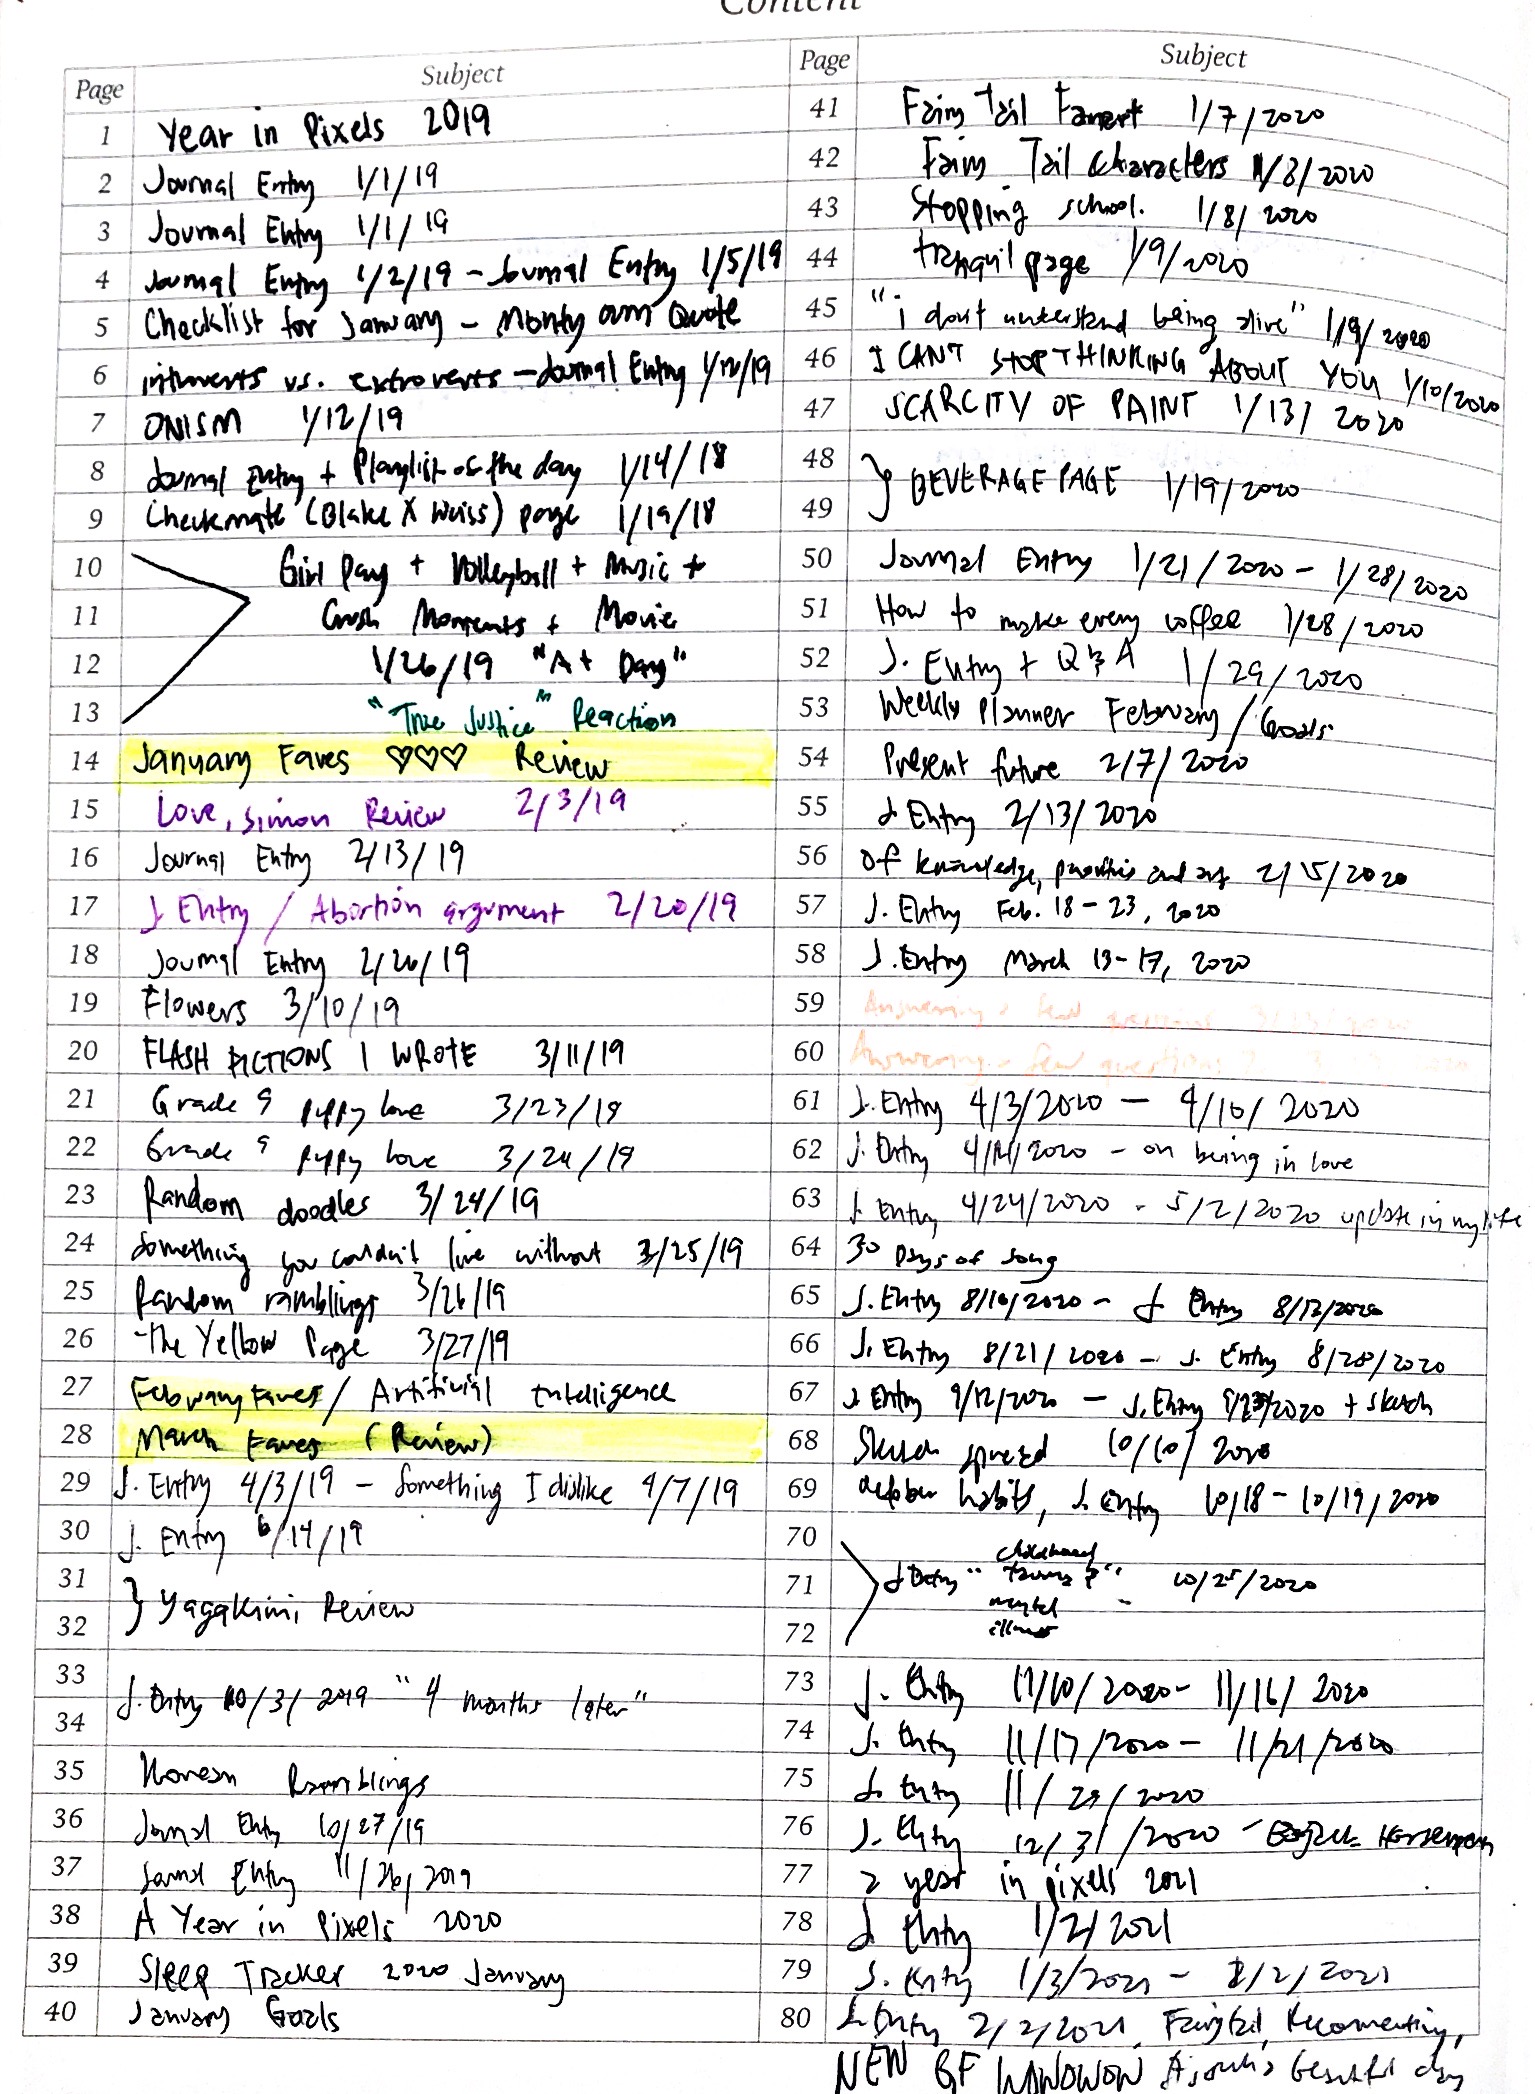 Content
Page Subject
1 Year in Pixels 2019
2 Journal Entry 1/1/19
3 Journal Entry 1/1/19
4 Journal Entry 1/2/19 - Journal Entry 1/5/19
5 Checklist for January - Monty Oum Quote
6 introverts vs. extroverts - Journal Entry 1/12/19
7 ONISM 1/12/19
8 Journal Entry + Playlist of the day 1/14/18
9 Checkmate (Blake X Weiss) page 1/19/18
10 Girl Day + Volleyball + Music +
11 Crush Moments + Movie
12 1/26/19 "A+ Day"
13 "True Justice" Reaction
14 January Faves ♡♡♡ Review
15 Love, Simon Review 2/3/19
16 Journal Entry 2/13/19
17 J. Entry / Abortion argument 2/20/19
18 Journal Entry 2/26/19
19 Flowers 3/10/19
20 FLASH FICTIONS I WROTE 3/11/19
21 Grade 9 puppy love 3/23/19
22 Grade 9 puppy love 3/24/19
23 Random doodles 3/24/19
24 Something you couldn't live without 3/25/19
25 Random ramblings 3/26/19
26 The Yellow Page 3/27/19
27 February Faves / Artificial Intelligence
28 March Faves (Review)
29 J. Entry 4/3/19 - Something I dislike 4/7/19
30 J. Entry 6/14/19
31
} Yagakimi Review
32
33
J. Entry 10/3/2019 "4 months later"
34
35 Korean Ramblings
36 Journal Entry 10/27/19
37 Journal Entry 11/26/2019
38 A Year in Pixels 2020
39 Sleep Tracker 2020 January
40 January Goals
Page Subject
41 Fairy Tail Fanart 1/7/2020
42 Fairy Tail Characters 1/8/2020
43 Stopping school. 1/8/2020
44 tranquil page 1/9/2020
45 "i dont understand being alive" 1/9/2020
46 I CANT STOP THINKING ABOUT YOU 1/10/2020
47 SCARCITY OF PAINT 1/13/2020
48
} BEVERAGE PAGE 1/19/2020
49
50 Journal Entry 1/21/2020 - 1/28/2020
51 How to make every coffee 1/28/2020
52 J. Entry + Q & A 1/29/2020
53 Weekly Planner February / Goals
54 Present future 2/7/2020
55 J Entry 2/13/2020
56 Of knowledge, priorities and 2/15/2020
57 J. Entry Feb. 18-23, 2020
58 J. Entry March 13-17, 2020
59 Answering a few questions
60 Answering a few questions
61 J. Entry 4/3/2020 - 4/10/2020
62 J. Entry - on being in love
63 J. Entry 4/24/2020 - 5/2/2020 update in my life
64 30 Days of song
65 J. Entry 8/10/2020 - J Entry 8/12/2020
66 J. Entry 8/21/2020 - J. Entry 8/28/2020
67 J. Entry 9/12/2020 - J. Entry + sketch
68 Sketch spread 10/10/2020
69 october habits, J. Entry 10/18 - 10/19/2020
70 childhood
71 J Entry " trauma?" 10/25/2020
mental
72 illness
73 J. Entry 11/10/2020 - 11/16/2020
74 J. Entry 11/17/2020 - 11/21/2020
75 J. Entry 11/29/2020
76 J. Entry 12/31/2020 - Bojack Horseman
77 a year in pixels 2021
78 J Entry 1/2/2021
79 J. Entry 1/3/2021 - 2/2/2021
80 J. Entry 2/2/2021, Fairytail, Reconnecting,
NEW GF beautiful day